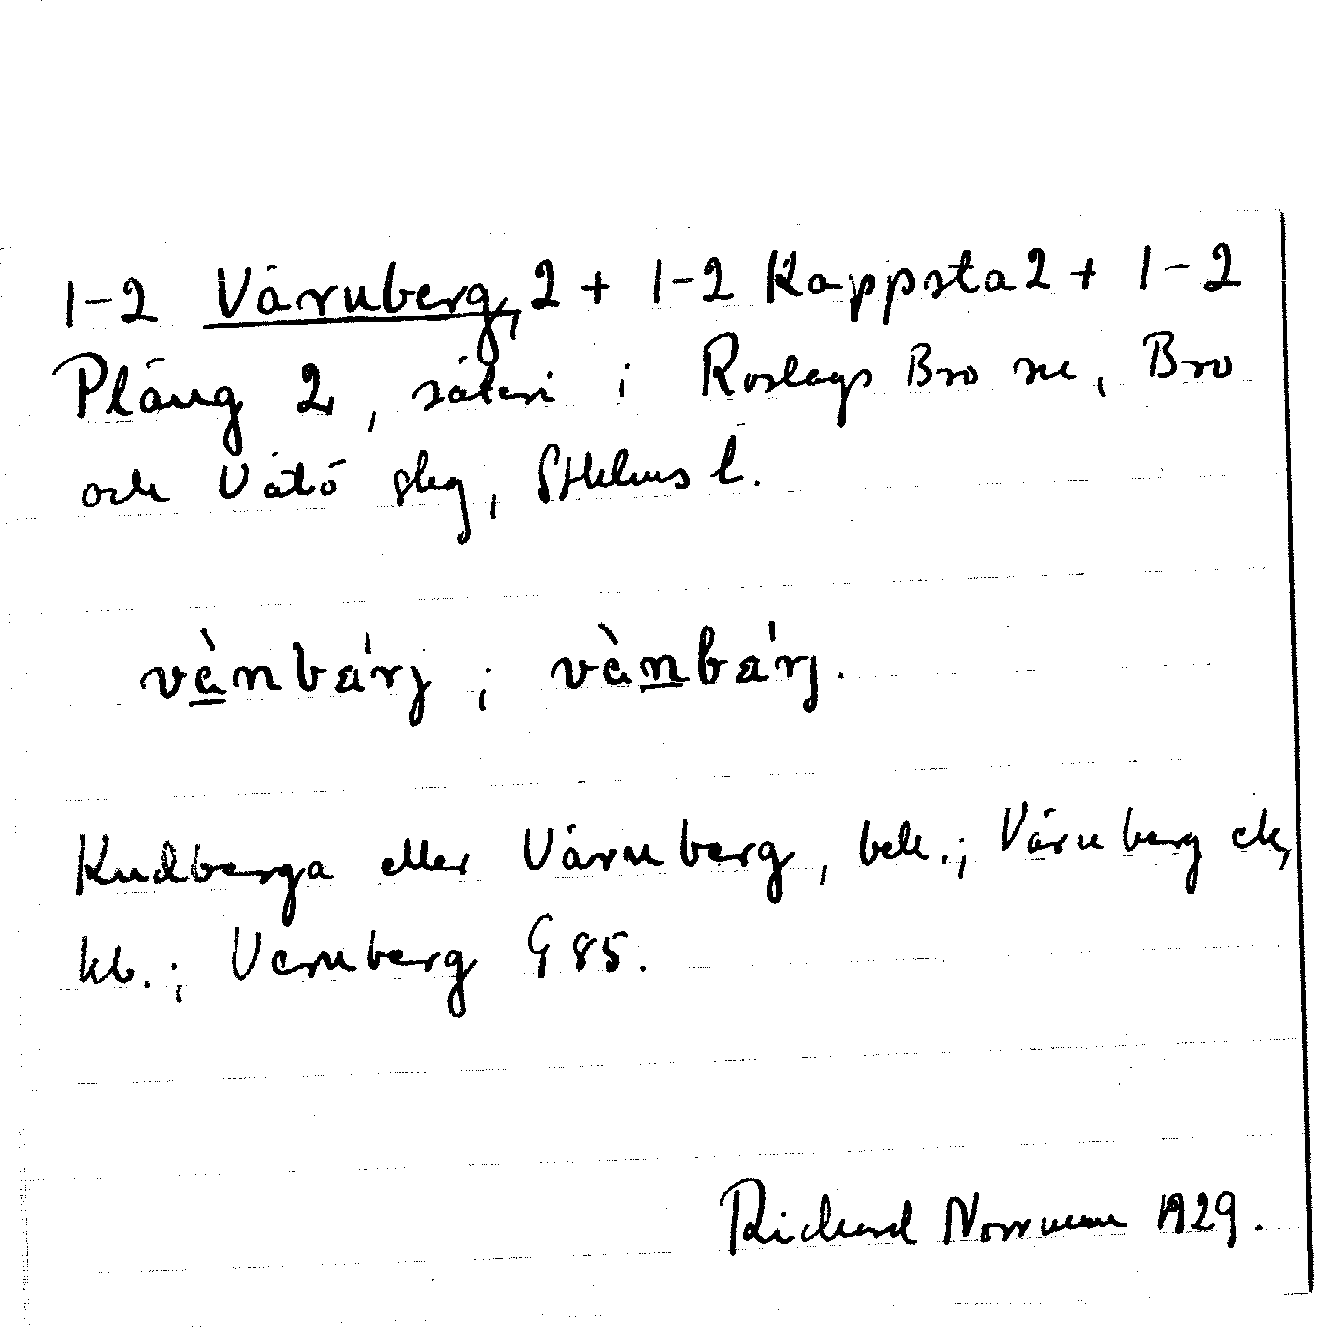 1-2 Värnberg, 2 + 1-2 Kappsta 2 + 1-2
Pläng 2, säteri i Roslags Bro sn, Bro
och Vätö skg, Sthlms l.
vȧ̀nbȧ́rj ; vȧ̀nbȧ́rj.
Kudberga eller Värnberg, bek.; Värnberg ek,
kb.; Vernberg G 85.
Richard Norrman 1929.